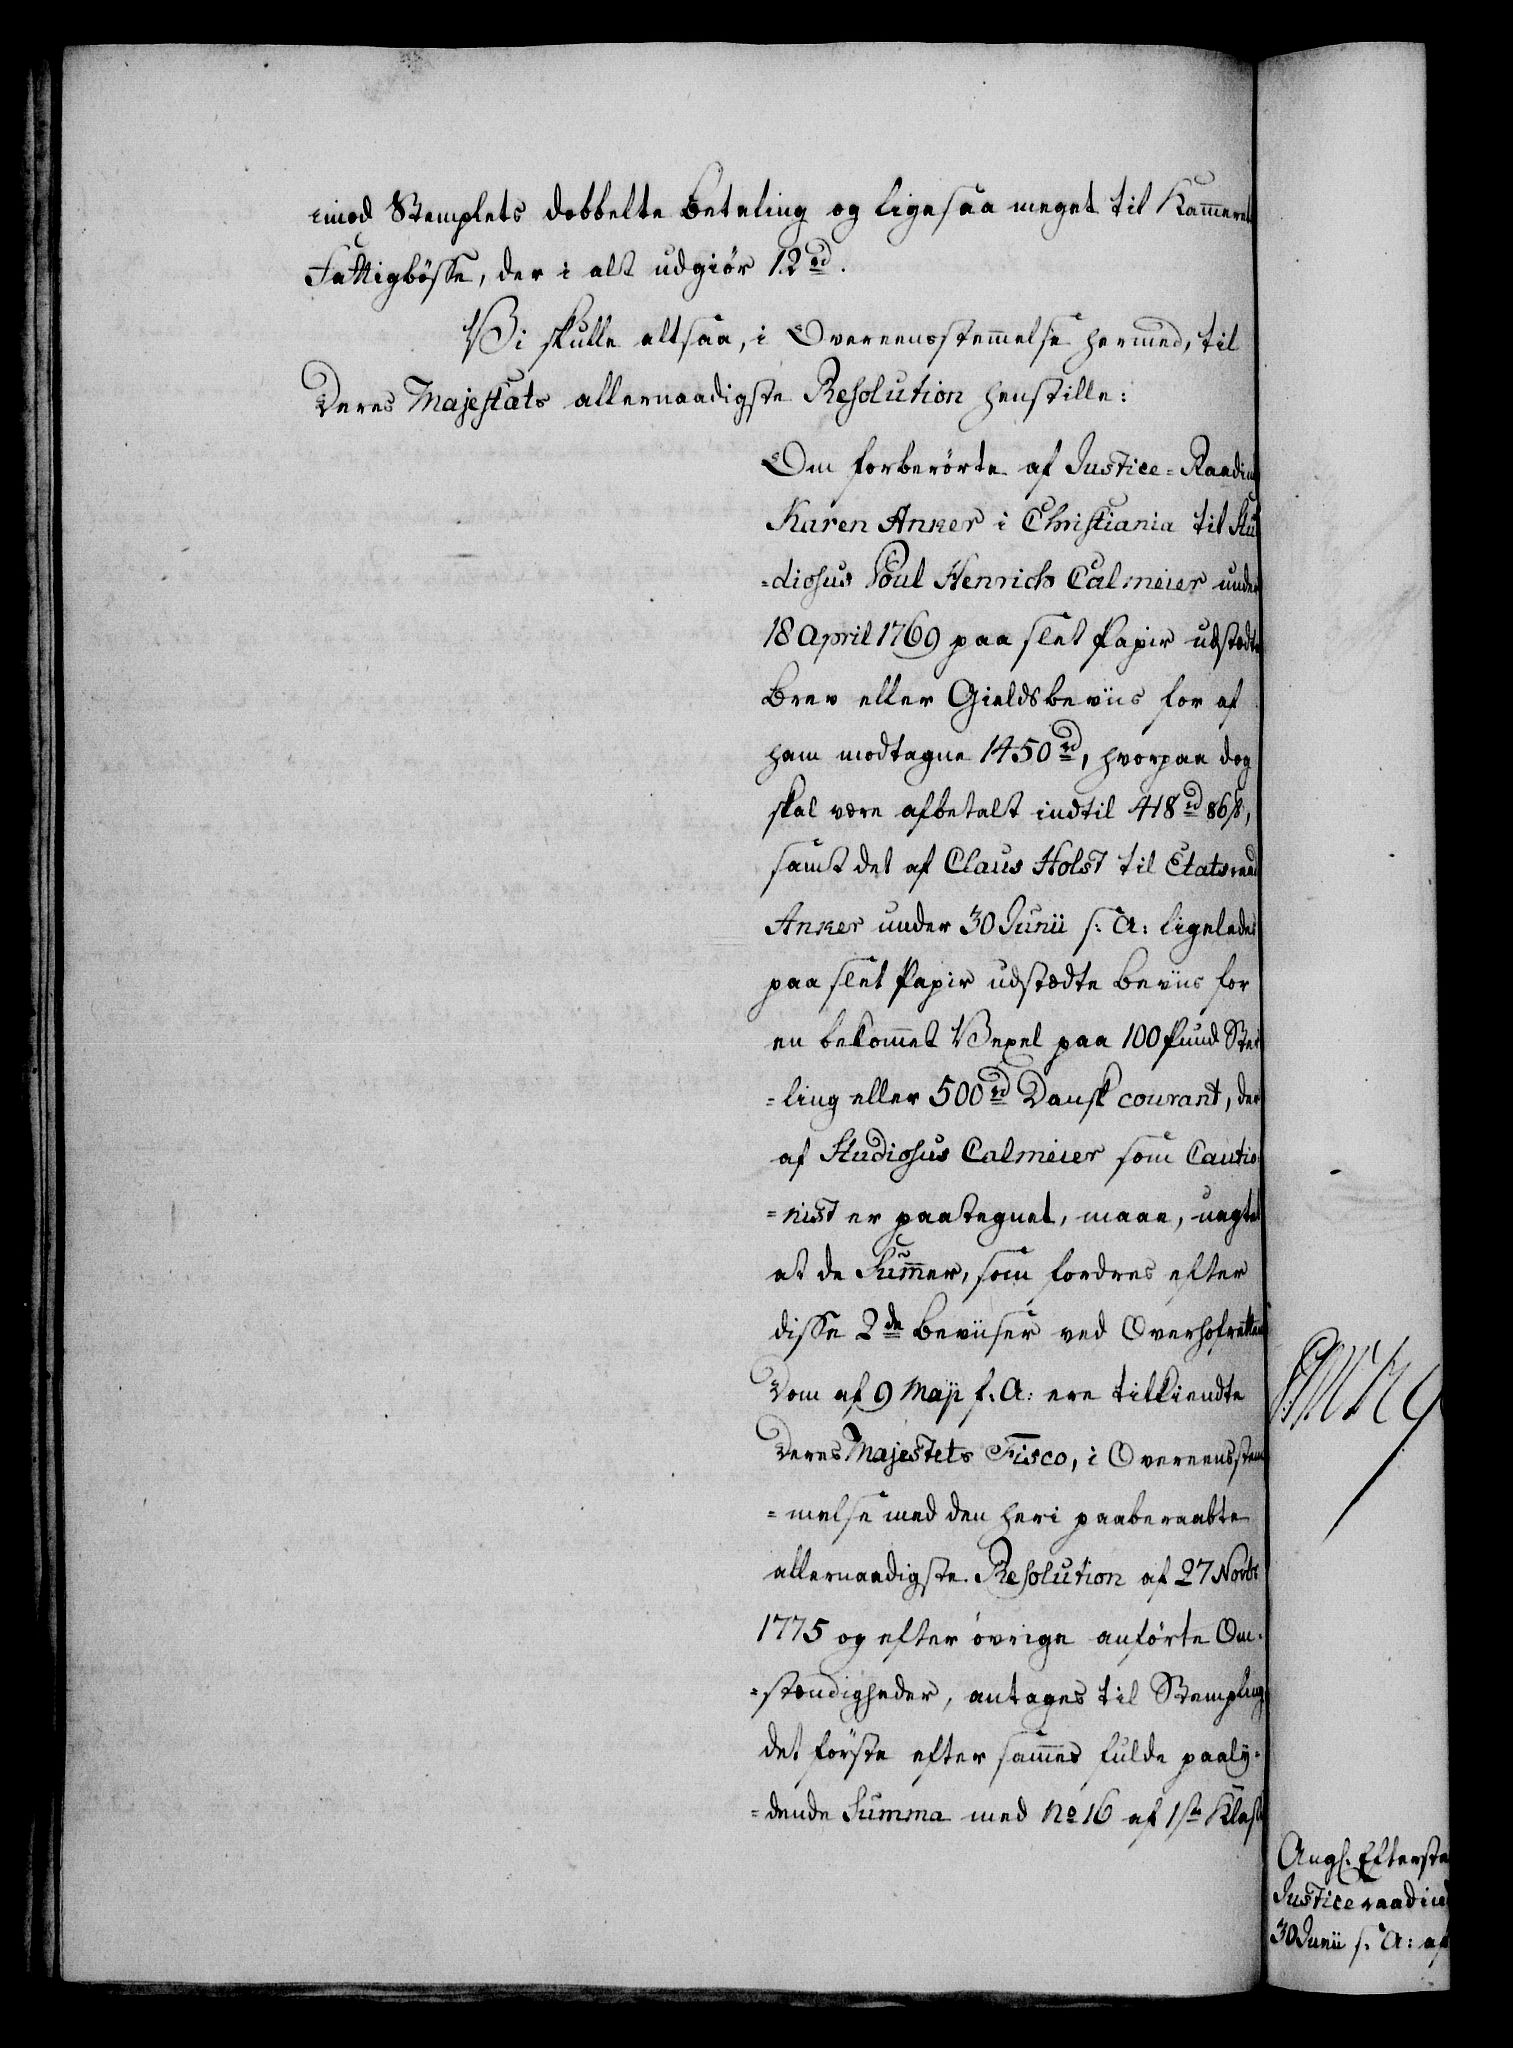 imod Stemplets dobbelte Betaling og ligesaa meget til Kammerets
Fattigbösse, der i alt udgiör 12 rd.
Vi skulle altsaa, i Overeensstemmelse hermed, til
Deres Majestæts allernaadigste Resolution henstille:
Om forberörte af Justice-Raadinde
Karen Anker i Christiania til Stu
=diosus Poul Henrich Calmeier under
18 April 1769 paa slet Papir udstædte
Brev eller Gieldsbeviis for af
ham modtagne 1450 rd, hvorpaa dog
skal være afbetalt indtil 418 rd 86 ß,
samt det af Claus Holst til Etatsraad
Anker under 30 Junii s: A: ligeledes
paa slet Papir udstædte Beviis for
en bekommet Vexel paa 100 Pund Ster
=ling eller 500 rd Dansk courant, der
af Studiosus Calmeier som Cautio
=nist er paategnet, maae, uagtet
at de Summer, som fordres efter
disse 2de Beviiser ved Overhofrettens
Dom af 9 Maji f. A: ere tilkiendte
Deres Majestets Fisco, i Overeensstem
=melse med den heri paaberaabte
allernaadigste Resolution af 27 Novbr
1775 og efter övrige anförte Om=
=stændigheder, antages til Stempling
det förste efter sammes fulde paaly=
=dende Summa med No 16 af 1ste Klasse
Angl. Efterste
Justiceraadind
30 Junii s. A: af